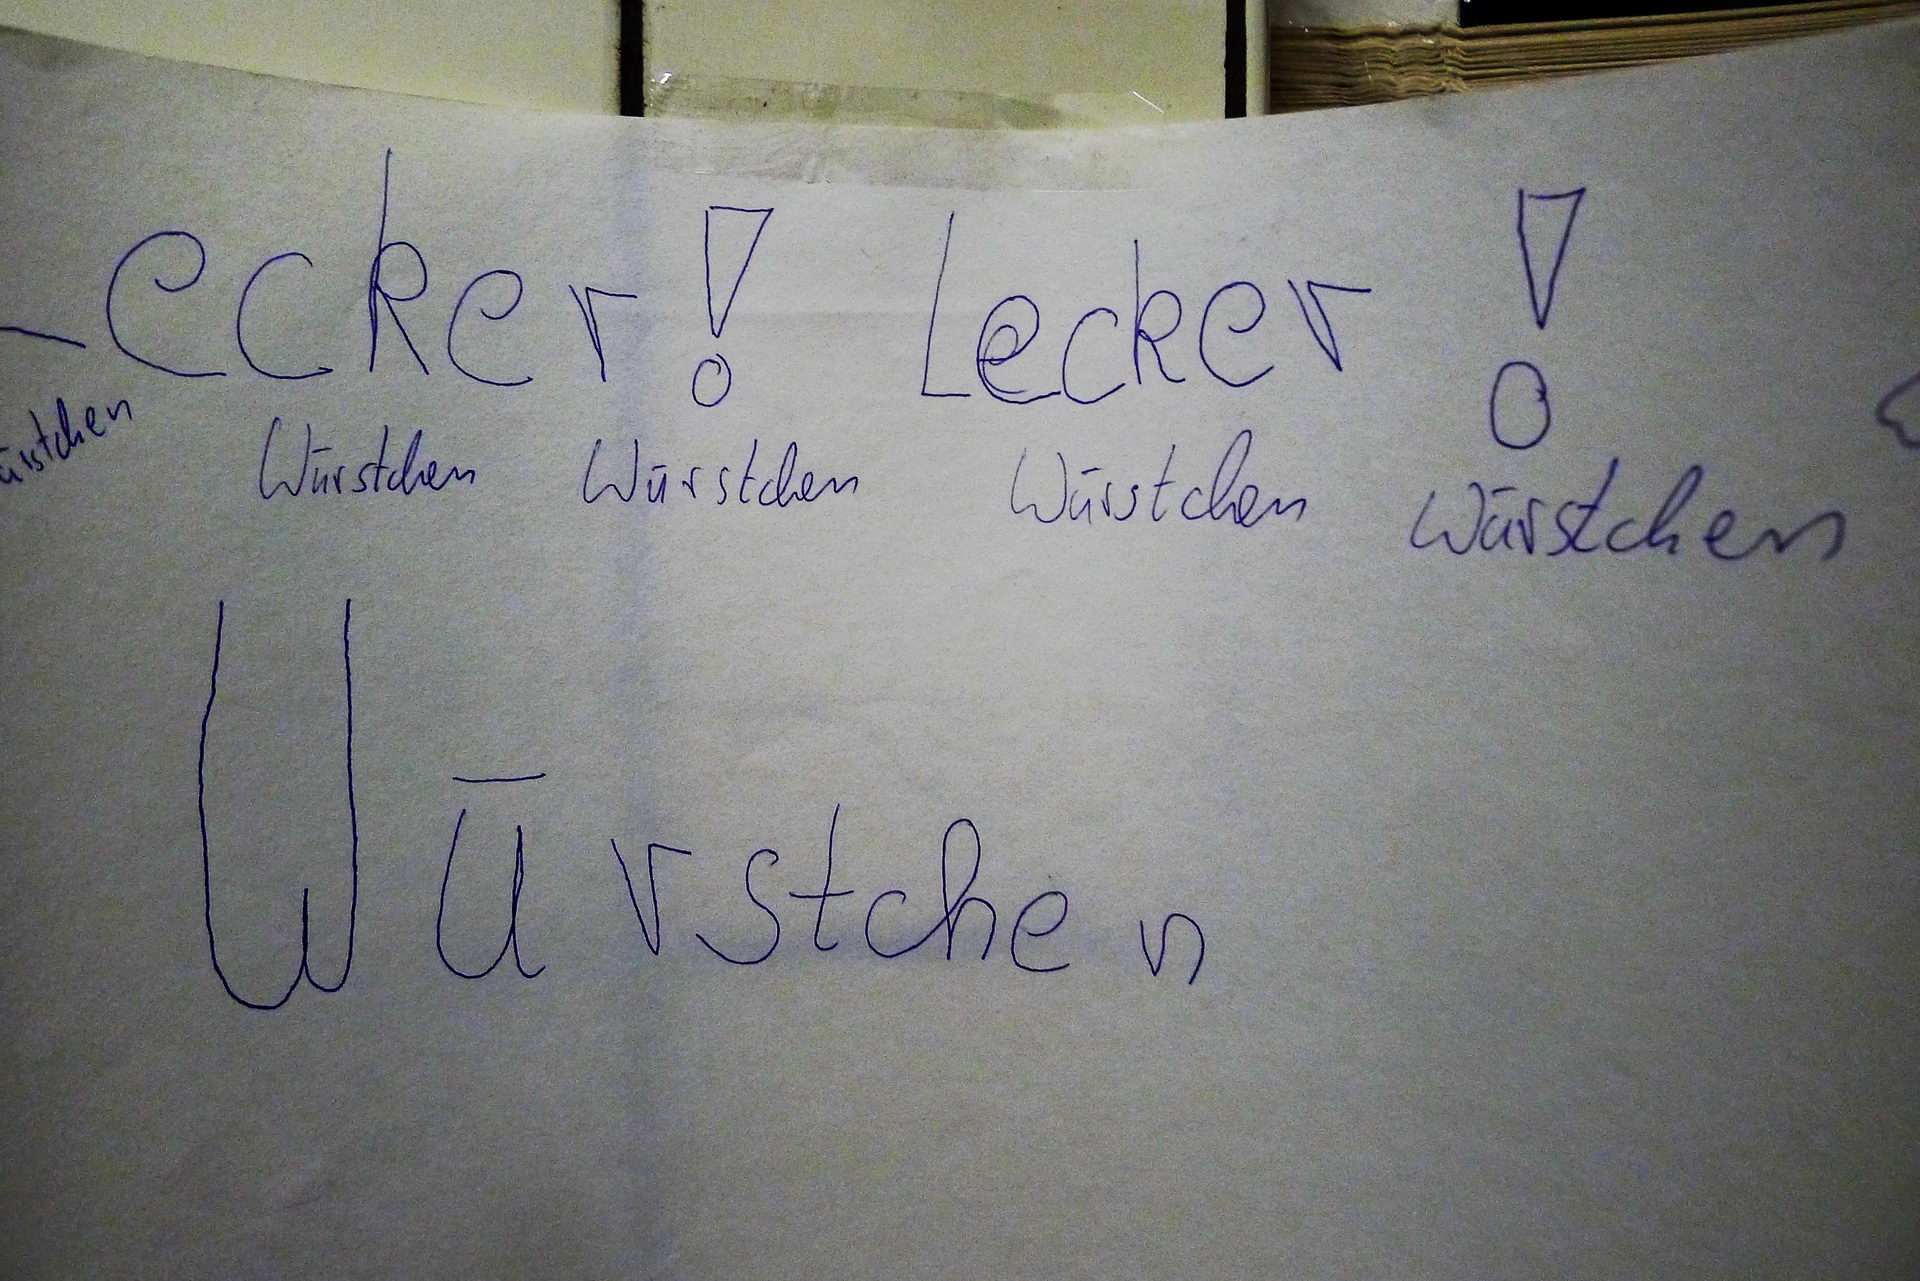 Lecker! Lecker!
Würstchen Würstchen Würstchen Würstchen Würstchen
Würstchen